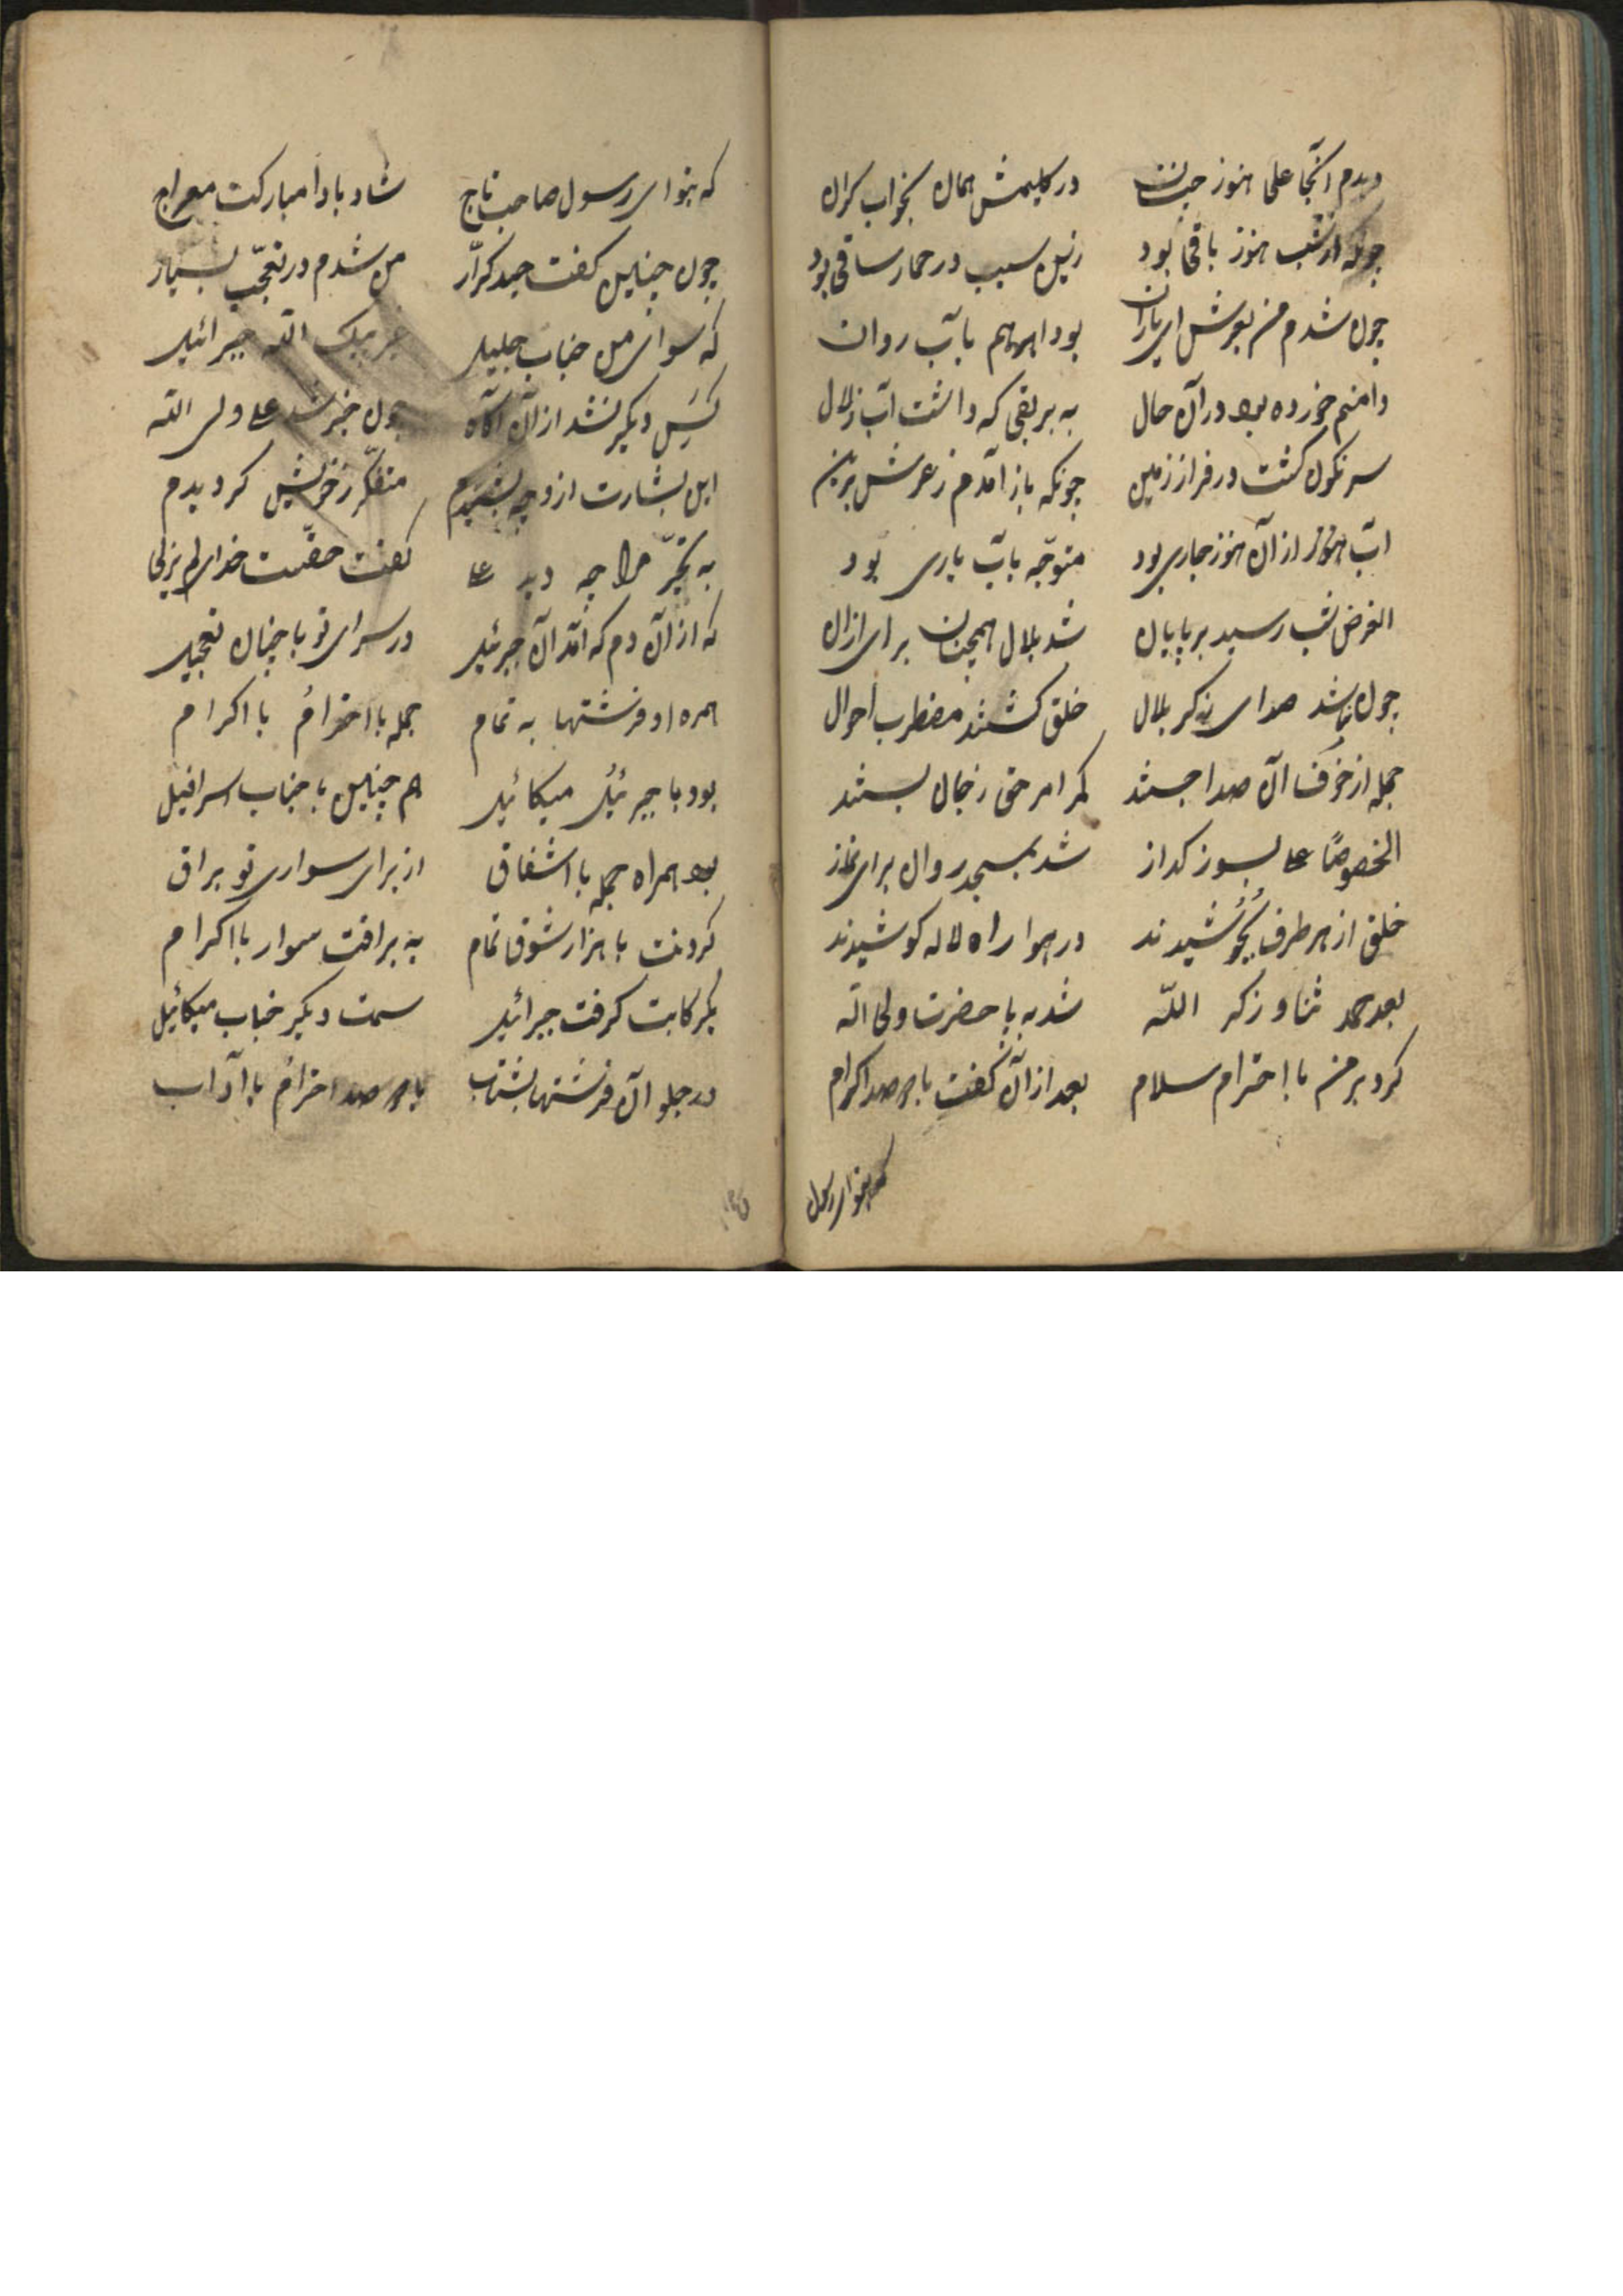 دیدم آنجا علی هنوز در کلیمش همان بخواب کران
چونکه از شب هنوز باقی بود زین سبب در خمار ساقی بود
چون شدم من بعرش ای یاران بود ابریهم باب روان
دامنم خورده بود در آن حال به بریقی که داشت آب زلال
سرنکون کشت در فراز زمین چونکه باز آمدم ز عرش برین
آب هنوز از آن هنوز جاری بود متوجّه بآب یاری بود
الغرض شب رسید بر پایان شد بلال همچنان برای اذان
چون شد صدای ذکر بلال خلق کشتند مضطرب احوال
جمله از خوف آن صدا جستند کمر امر حق ز جان بستند
الخصوصًا علی بسوز کداز شد بمسجد روان برای نماز
خلق از هر طرف بجُوشیدند در هوا راه لاله کوشیدند
بعد حمد ثنا و ذکر اللّه شد به با حضرت ولی اله
کرد بر من با احترام سلام بعد از آن گفت با صد اکرام
که بتو ای رسول
که بتو ای رسول صاحب تاج شاد بادا مبارکت معراج
چون چنین کفت حیدر کرّار من شدم در تعجّب بسیار
که سوای من جناب جلیل غیر پیک اللّه جبرائیل
کَسِ دیکر نشد از آن آکاه چون خبر شد علی ولی اللّه
این بشارت ازو چه بشنیدم متفکّر ز خویش کردیدم
به تحیّر مرا چه دید علی کفت حقّست خدای لم یزلی
که از آن دم که آمد آن جبرئیل در سرای تو با چنان تعجیل
همره او فرشتها به تمام جمله با احترام با اکرام
بود با جبرئیل میکائیل هم چنین با جناب اسرافیل
بود همراه جمله با اشفاق از برای سواری تو براق
کردنت با هزار شوق تمام به براقت سوار با اکرام
بکر کابت کرفت جبرائیل سمت دیکر جناب میکائیل
در جلو آن فرشتها بشتاب با صد احترام با آداب